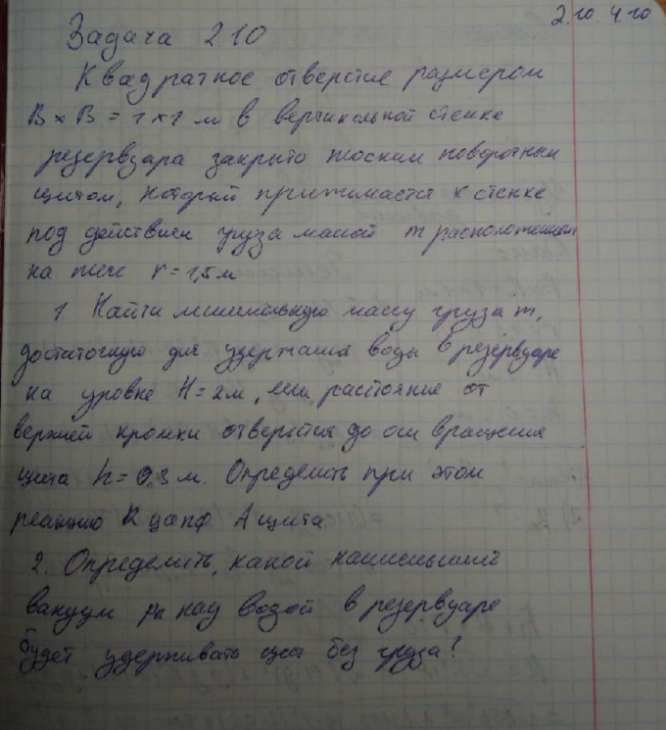 2.10. 4.10
Задача 2.10
Квадратное отверстие размером
B × B = 1 × 1 м в вертикальной стенке
резервуара закрыто плоским поворотным
щитом, который прижимается к стенке
под действием груза массой m расположенном
на плече r = 1,5 м
1. Найти минимальную массу груза m,
достаточную для удержания воды в резервуаре
на уровне H = 2 м, если растояние от
верхней кромки отверстия до оси вращения
щита h = 0,3 м. Определить при этом
реакцию R цапф A щита.
2. Определить, какой наименьший
вакуум над водой в резервуаре
будет удерживать щит без груза?